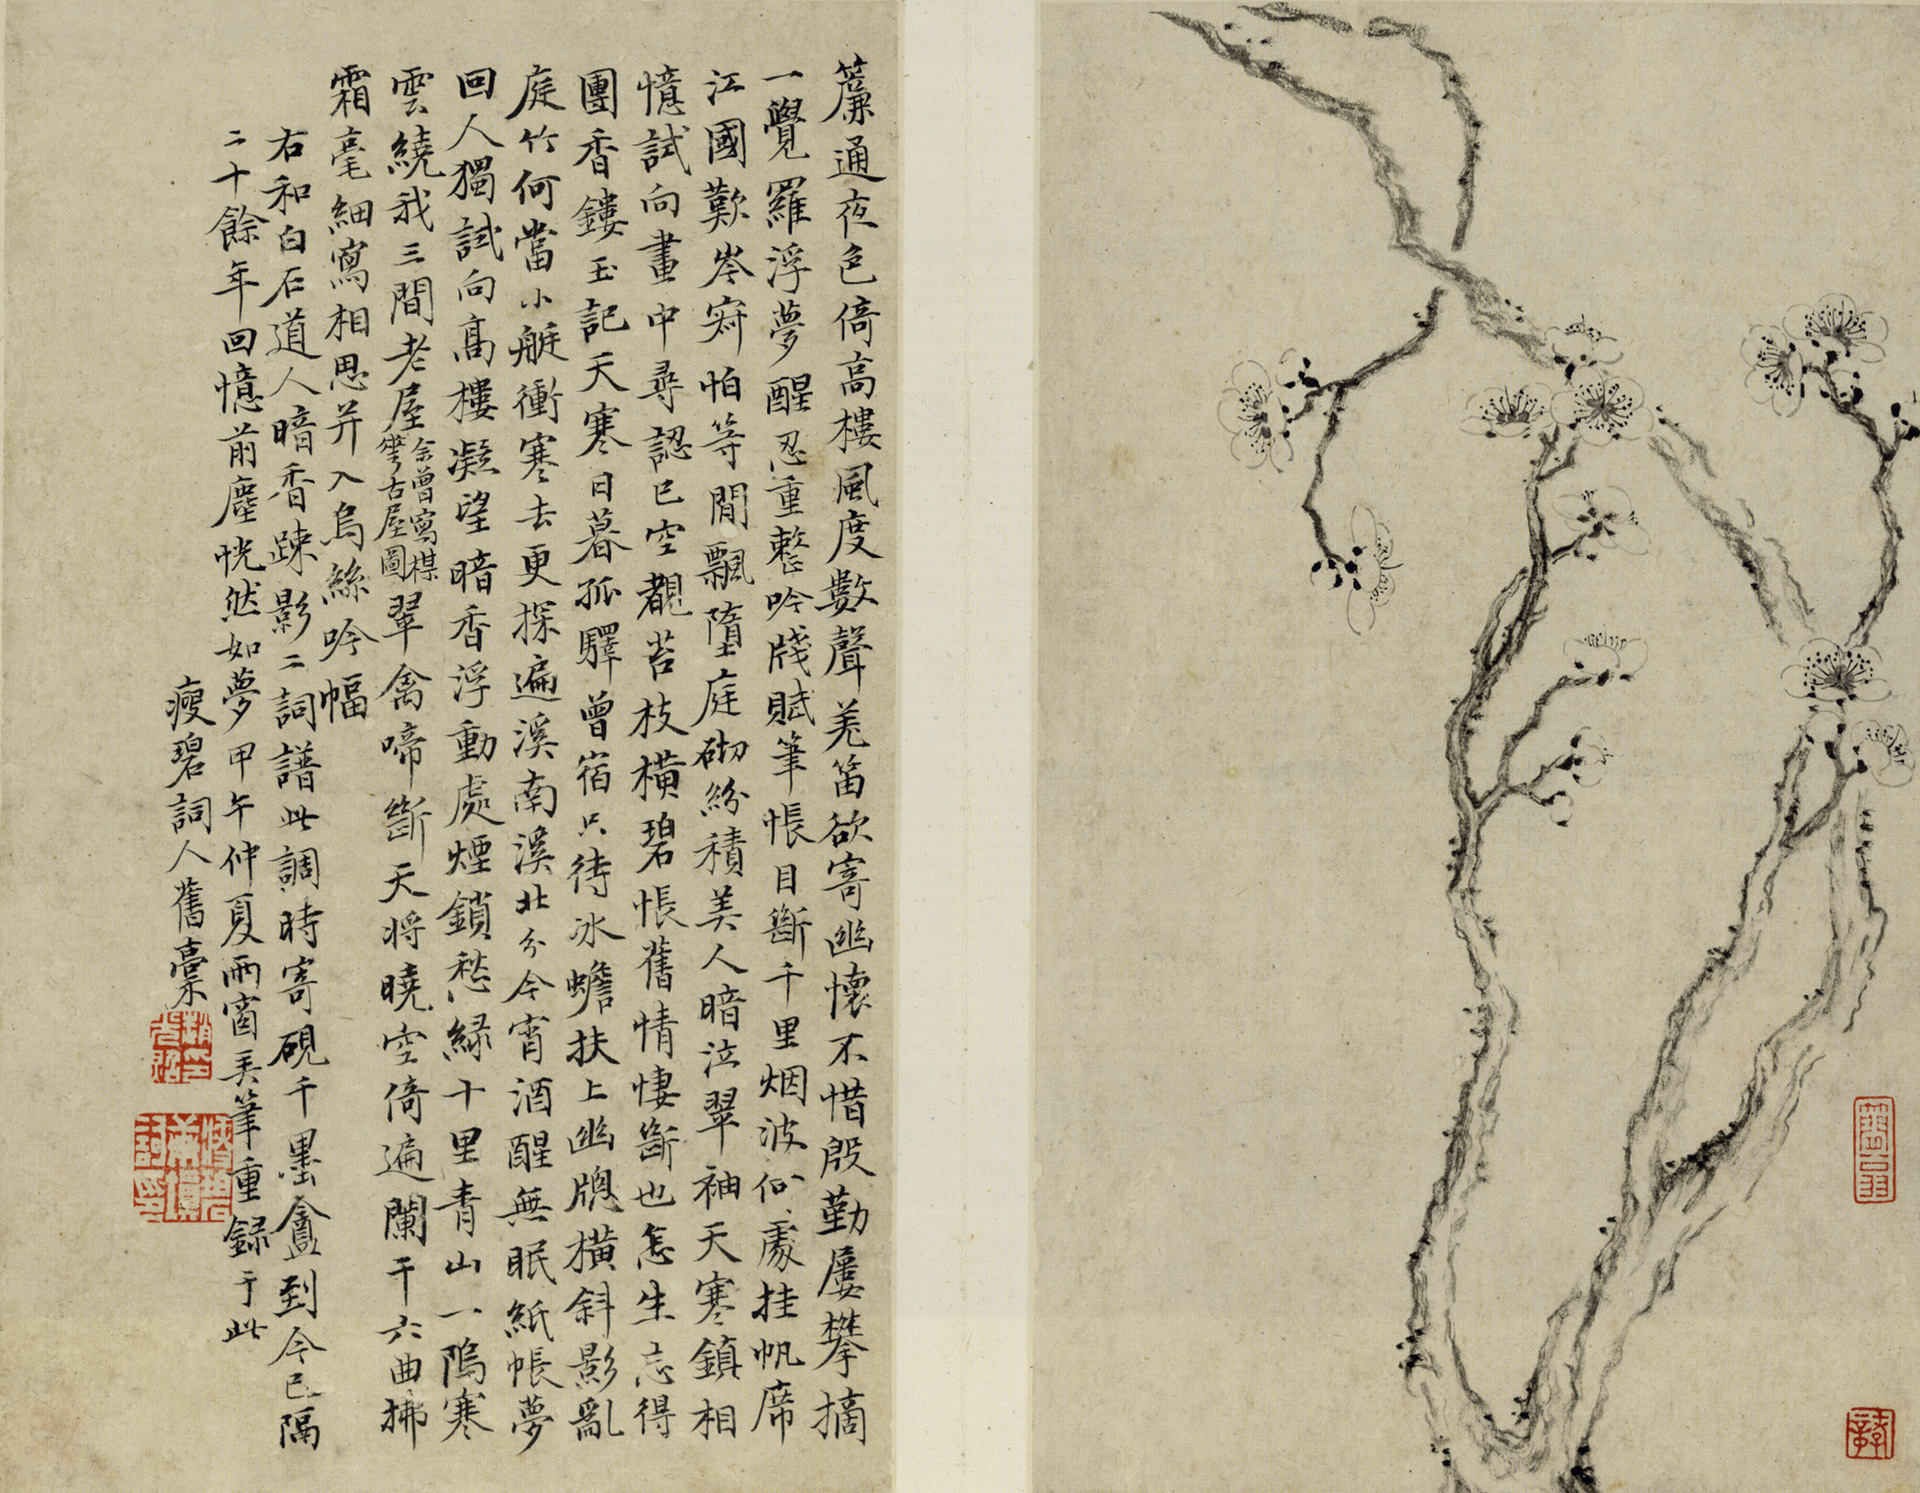 簾通夜色倚高樓風度數聲羌笛欲寄幽懷不惜殷勤屢攀摘
一覺羅浮夢醒忍重整吟牋賦筆悵目斷千里烟波何處挂帆席
江國歎岑寂怕等閒飄墮庭砌紛積美人暗泣翠袖天寒鎮相
憶試向畫中尋認已空覩苔枝橫碧悵舊情悽斷也怎生忘得
團香鏤玉記天寒日暮孤驛曾宿只待冰蟾扶上幽牕橫斜影亂
庭竹何當小艇衝寒去更探遍溪南溪北分今宵酒醒無眠紙帳夢
回人獨試向高樓凝望暗香浮動處煙鎖愁綠十里青山一隖寒
雲繞我三間老屋
余曾寫楳
花古屋圖
翠禽啼斷天將曉空倚遍闌干六曲拂
霜毫細寫相思并入烏絲吟幅
右和白石道人暗香疎影二詞譜此調時寄硯千墨盦到今已隔
二十餘年回憶前塵恍然如夢甲午仲夏雨窗弄筆重錄于此
瘦碧詞人舊稾